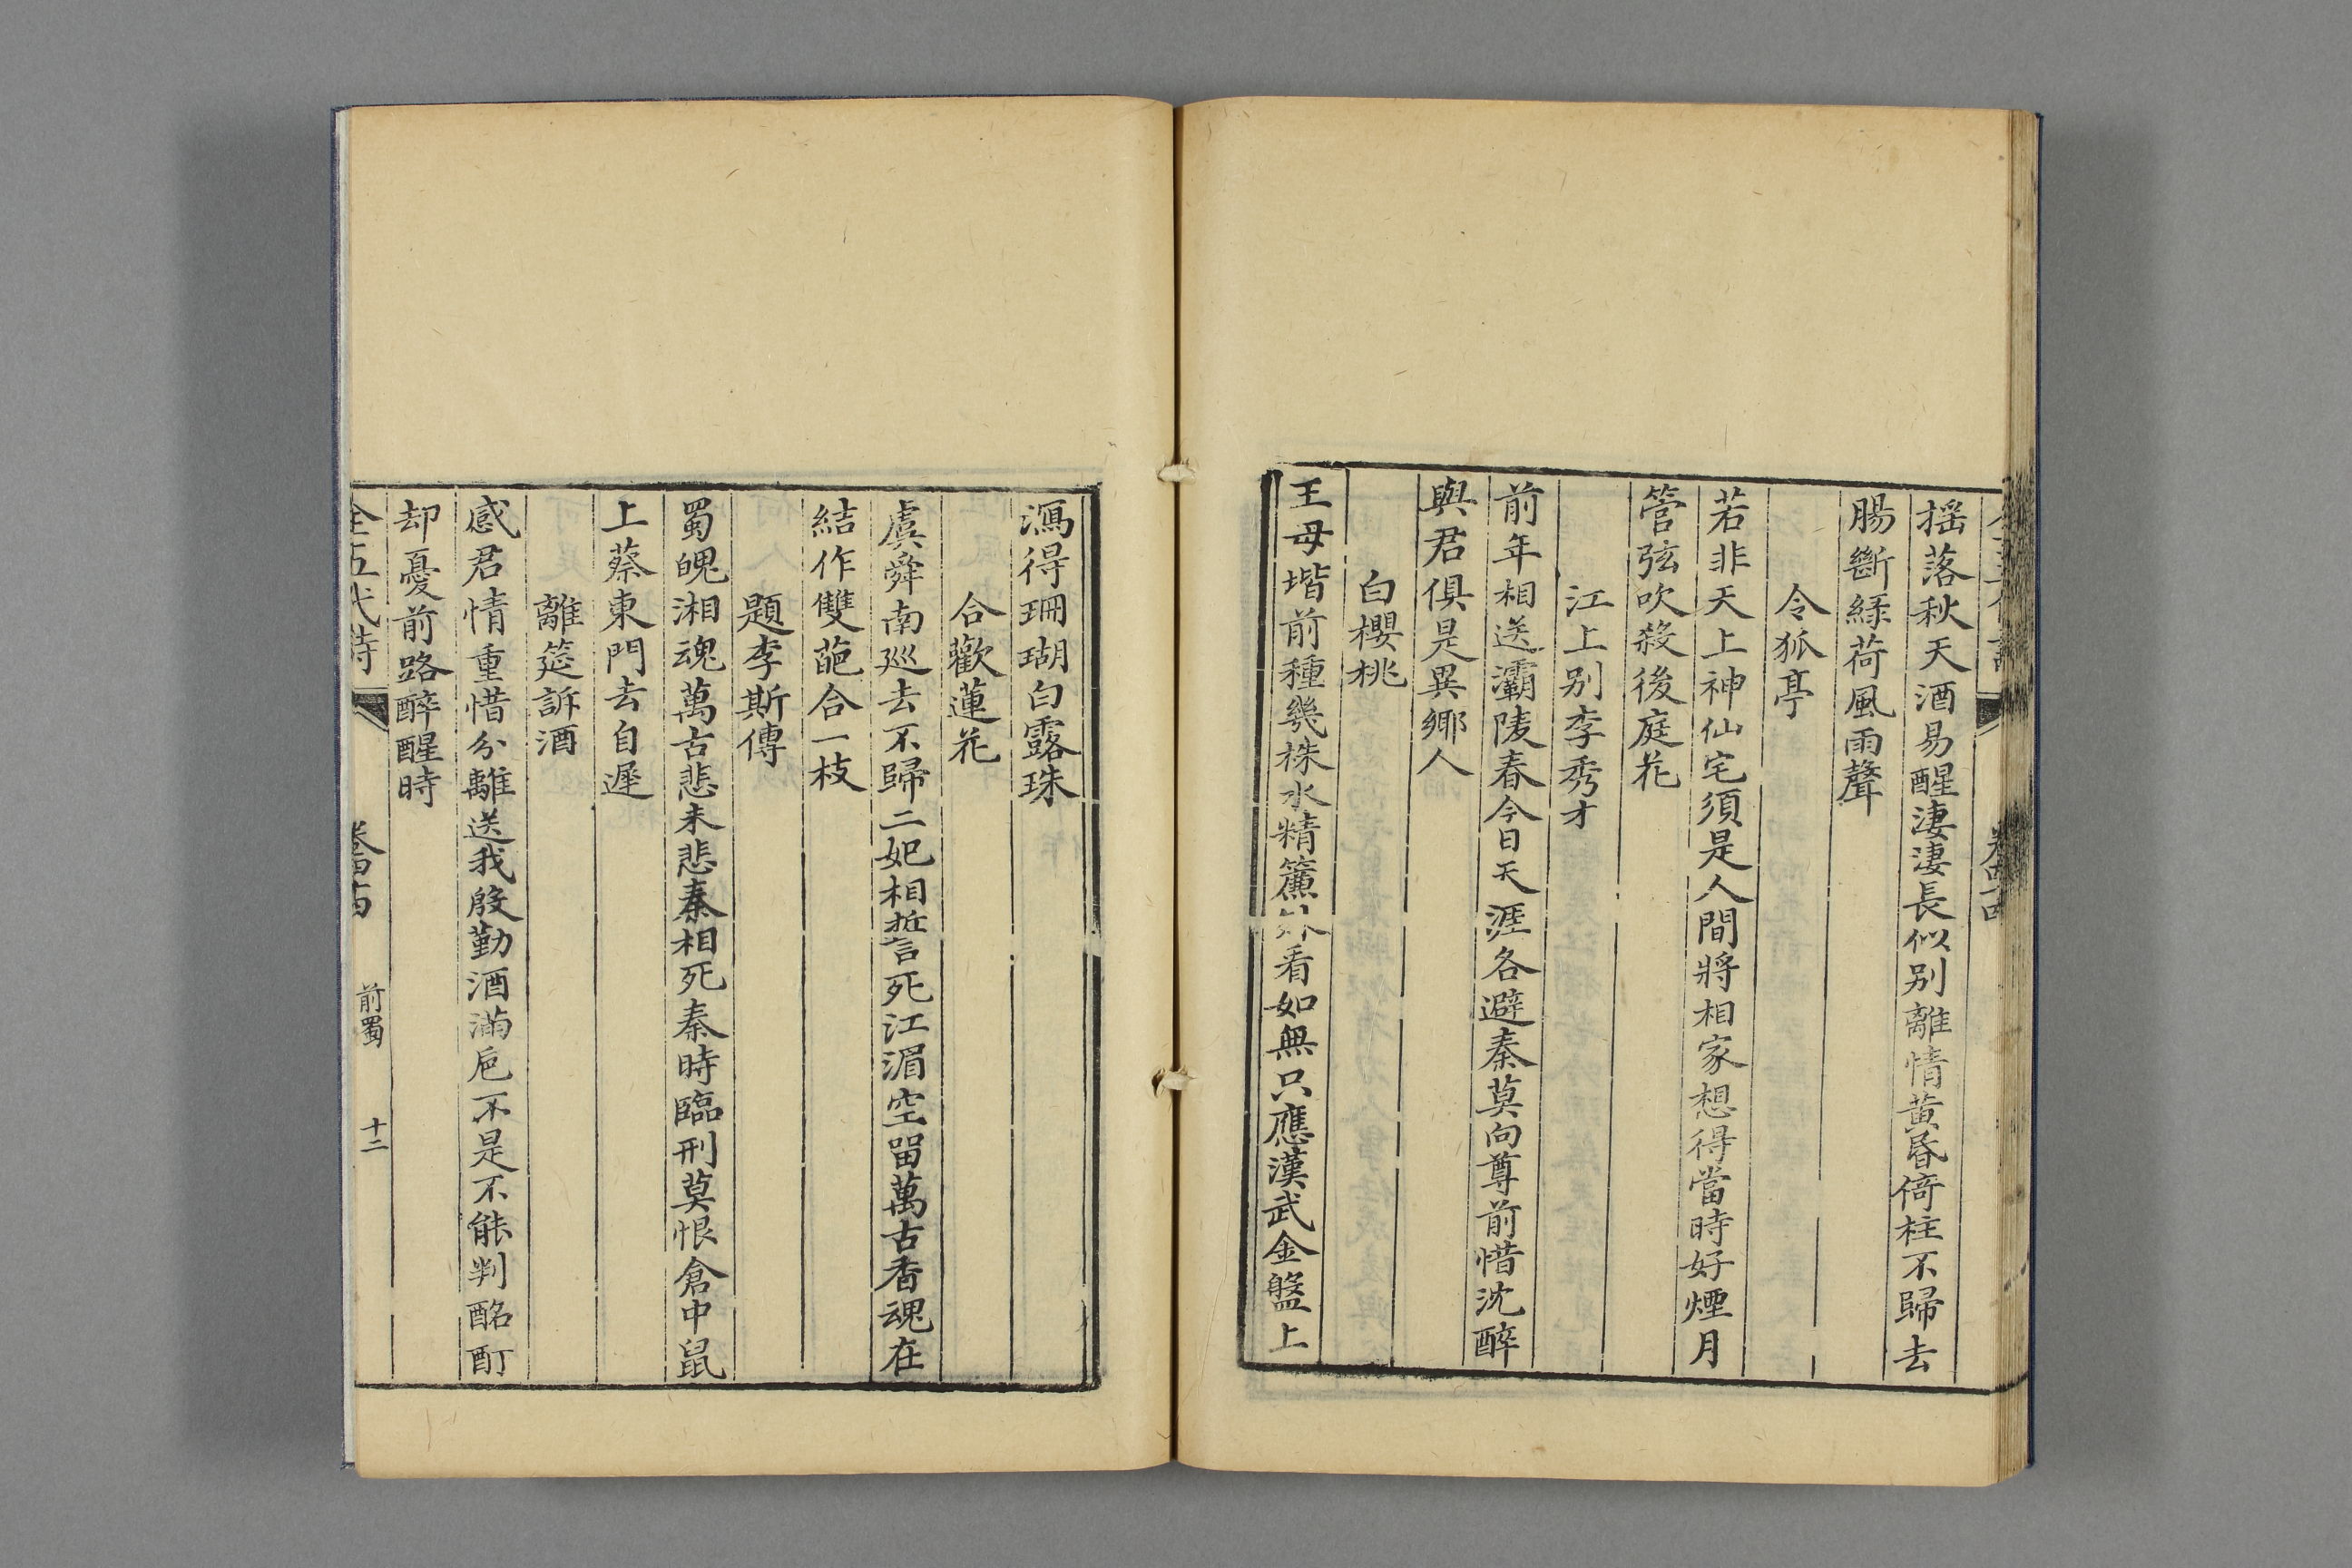 搖落秋天酒易醒淒淒長似別離情黃昏倚柱不歸去
腸斷綠荷風雨聲
令狐亭
若非天上神仙宅須是人間將相家想得當時好煙月
管弦吹殺後庭花
江上別李秀才
前年相送灞陵春今日天涯各避秦莫向尊前惜沈醉
與君俱是異鄉人
白櫻桃
王母堦前種幾株水精簾外看如無只應漢武金盤上
瀉得珊瑚白露珠
合歡蓮花
虞舜南巡去不歸二妃相誓死江湄空留萬古香魂在
結作雙葩合一枝
題李斯傳
蜀魄湘魂萬古悲未悲秦相死秦時臨刑莫恨倉中鼠
上蔡東門去自遲
離筵訴酒
感君情重惜分離送我殷勤酒滿卮不是不能判酩酊
却憂前路醉醒時
全五代詩 卷四十四 前蜀 十二